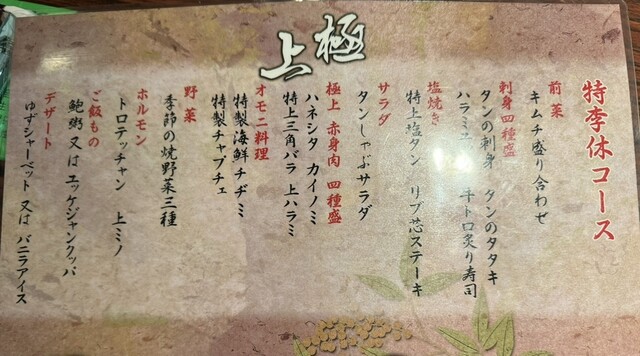 極上
特季休コース
前菜
キムチ盛り合わせ
刺身四種盛
タンの刺身 タンのタタキ
ハラミユ 牛トロ炙り寿司
塩焼き
特上塩タン リブ芯ステーキ
サラダ
タンしゃぶサラダ
極上 赤身肉 四種盛
ハネシタ カイノミ
特上三角バラ 上ハラミ
オモニ料理
特製海鮮チヂミ
特製チャプチェ
野菜
季節の焼野菜三種
ホルモン
トロテッチャン 上ミノ
ご飯もの
鮑粥 又は ユッケジャンクッパ
デザート
ゆずシャーベット 又は バニラアイス